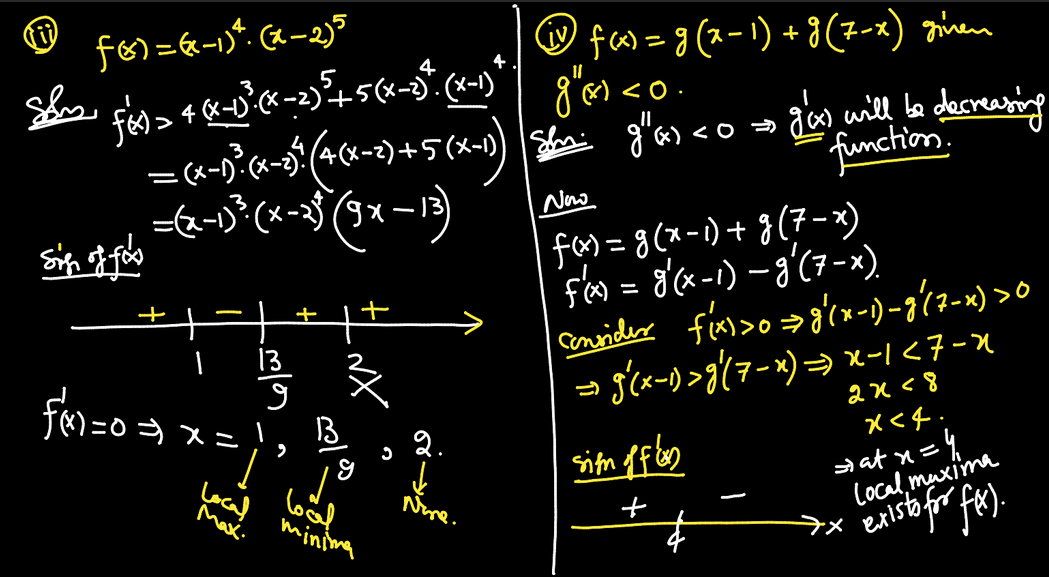 (iii) f(x) = (x-1)⁴. (x-2)⁵
Soln. f'(x) > 4(x-1)³.(x-2)⁵ + 5(x-2)⁴.(x-1)⁴.
= (x-1)³.(x-2)⁴.(4(x-2)+5(x-1))
= (x-1)³.(x-2)⁴(9x-13)
Sign of f'(x)
+ - + +
1 13/9 2
f'(x)=0 ⇒ x = 1, 13/9, 2.
Local Max.
Local minima
None.
(iv) f(x) = g(x-1) + g(7-x) given
g''(x) < 0.
Soln: g''(x) < 0 ⇒ g'(x) will be decreasing
function.
Now
f(x) = g(x-1) + g(7-x)
f'(x) = g'(x-1) - g'(7-x).
Consider f'(x)>0 ⇒ g'(x-1)-g'(7-x)>0
⇒ g'(x-1)>g'(7-x) ⇒ x-1<7-x
2x<8
x<4.
⇒ at x=4,
local maxima
exists for f(x).
sign of f'(x)
+ -
4 x